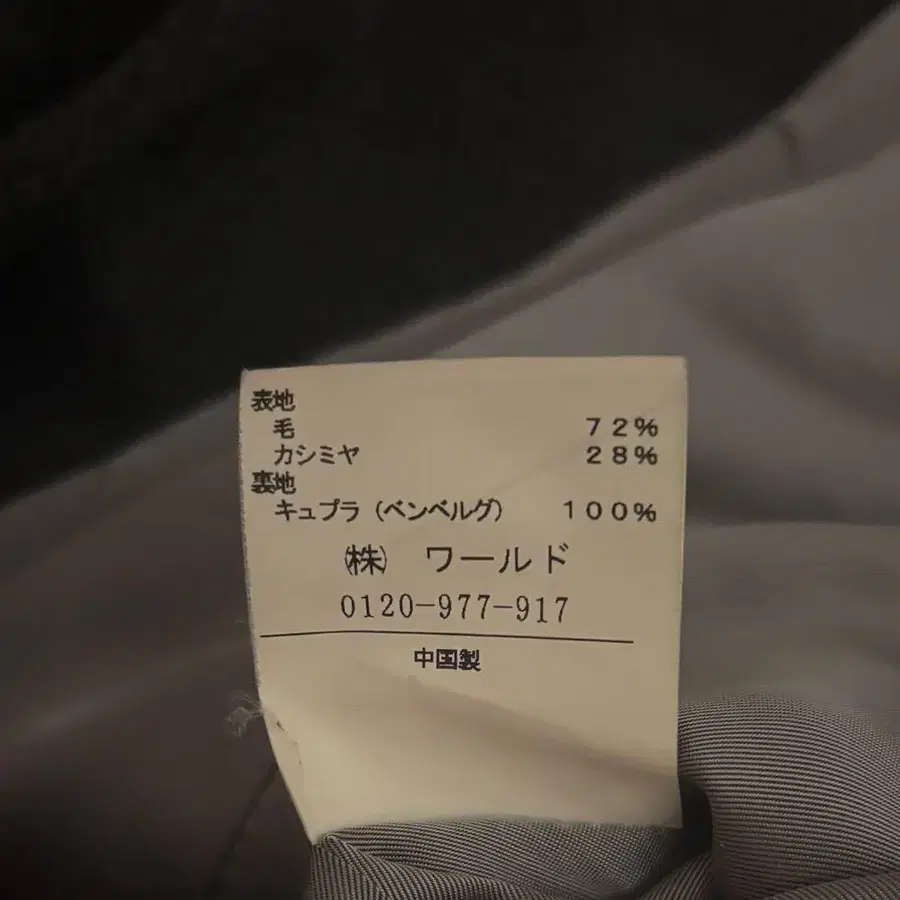 表地
毛 72%
カシミヤ 28%
裏地
キュプラ(ベンベルグ) 100%
㈱ ワールド
0120-977-917
中国製